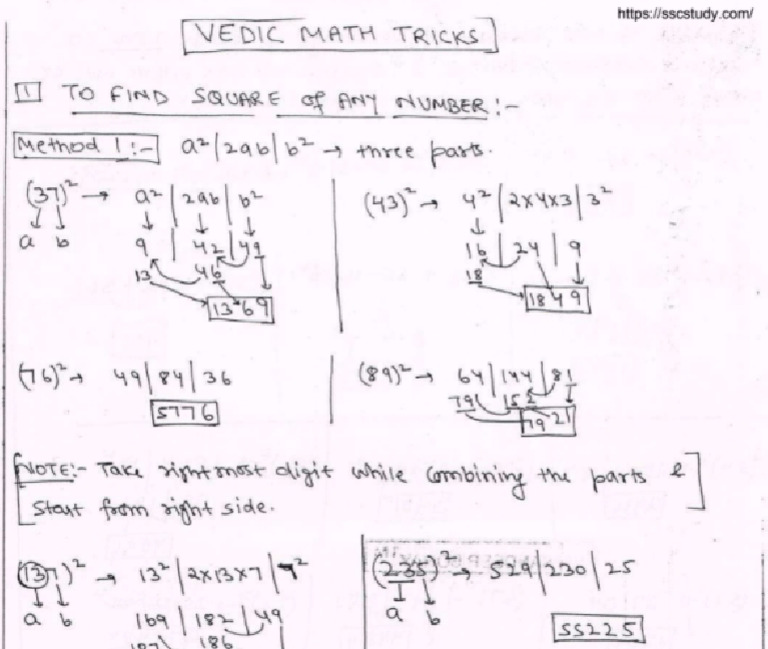 https://sscstudy.com/
VEDIC MATH TRICKS
1 TO FIND SQUARE OF ANY NUMBER:-
Method 1:- a² | 2ab | b² → three parts.
(37)² → a² | 2ab | b²
a b
9 | 42 | 49
13 46
13²69
(43)² → 4² | 2x4x3 | 3²
16 | 24 | 9
18
1849
(76)² → 49 | 84 | 36
5776
(89)² → 64 | 144 | 81
79 152
7921
NOTE:- Take right most digit while combining the parts &
start from right side.
(137)² → 13² | 2x13x7 | 7²
a b
169 | 182 | 49
187 186
(235)² → 529 | 230 | 25
a b
55225